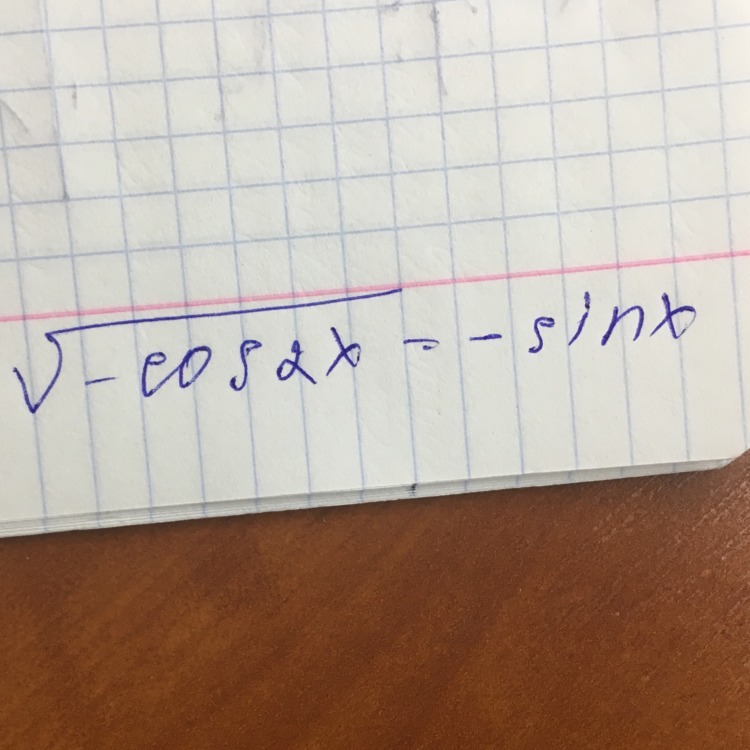 √-cos2x = -sinx